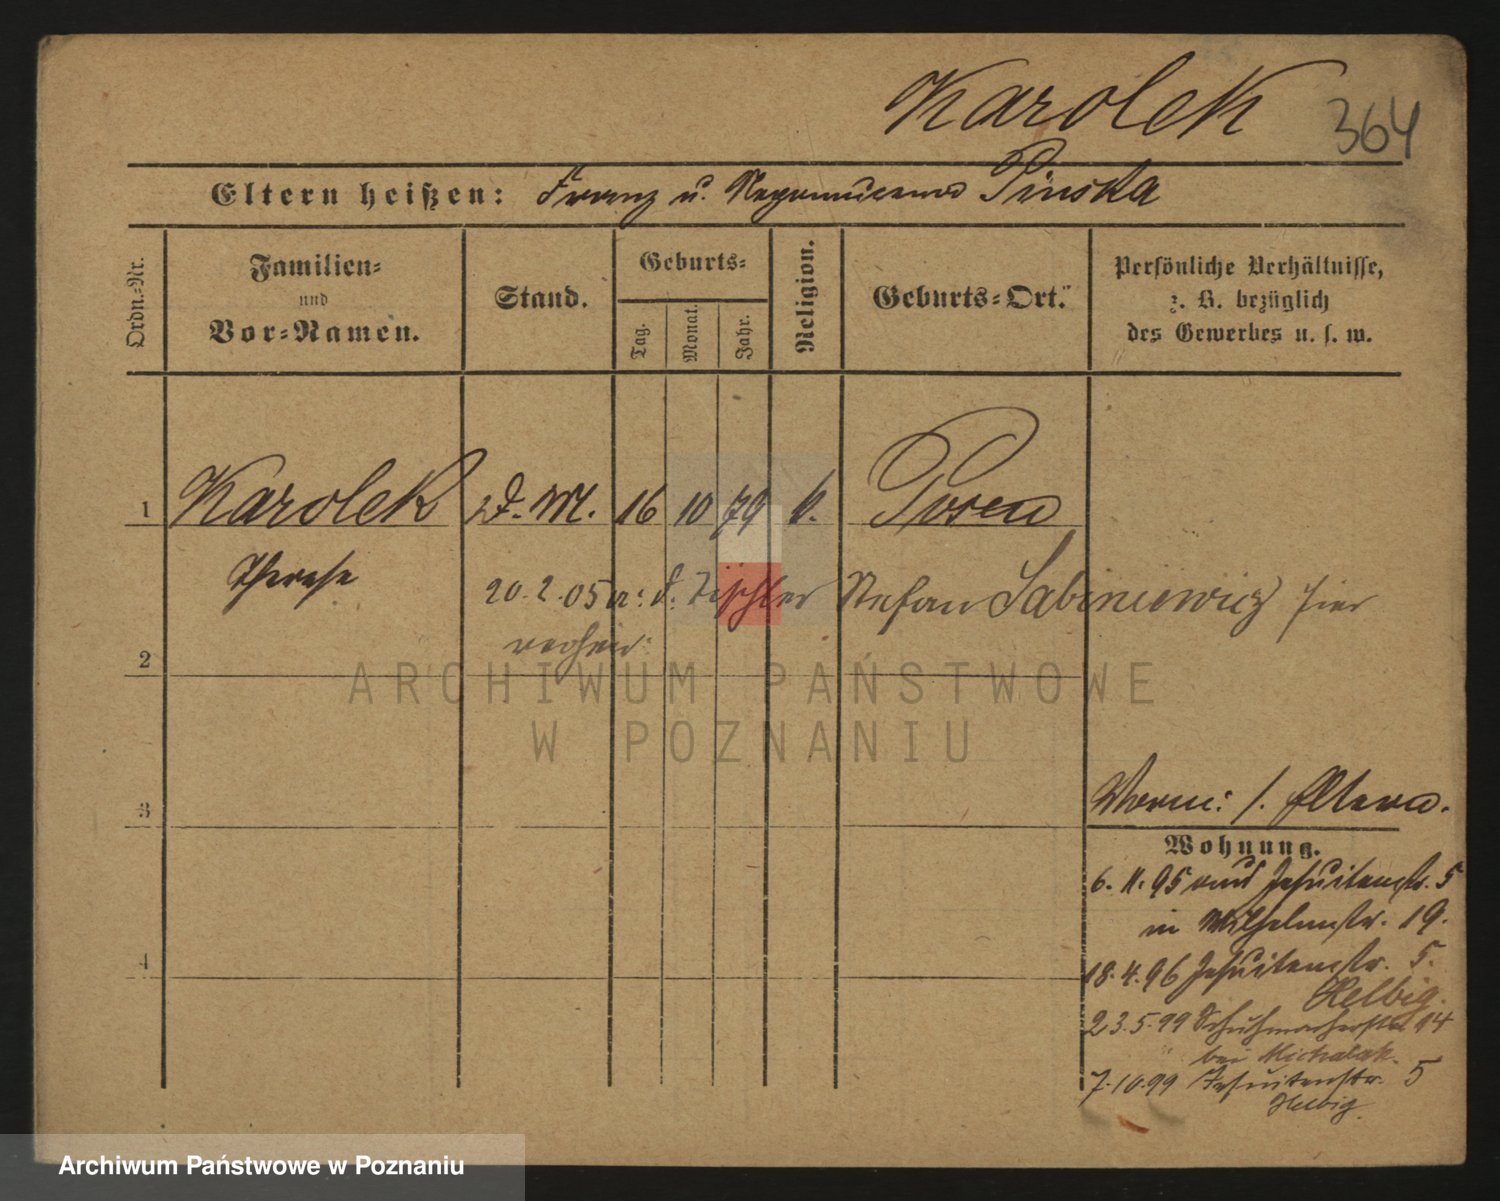 Karolek
364
Eltern heißen: Franz u. Nepomucena Pinska
Ordn.-Nr.
Familien-
und
Vor-Namen.
Stand.
Geburts-
Tag.
Monat.
Jahr.
Religion.
Geburts-Ort.
Persönliche Verhältnisse,
z. B. bezüglich
des Gewerbes u. s. w.
1 Karolek D. M. 16 10 79 k. Posen
Therese
20.2.05 a: d. Tischler Stefan Sabiniewicz hier
verheir:
2
3
4
Vorm: s. Eltern.
Wohnung.
6. 11. 95 von Jesuitenstr. 5
in Wilhelmstr. 19.
18. 4. 96 Jesuitenstr. 5.
Helbig.
23. 5. 99 Schuhmacherstr 14
bei Michalak.
7. 10. 99 Jesuitenstr. 5
Helbig
ARCHIWUM PAŃSTWOWE
W POZNANIU
Archiwum Państwowe w Poznaniu